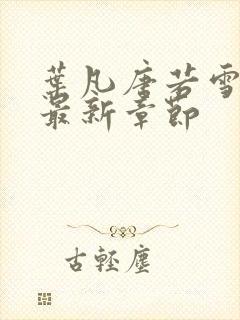 葉凡唐若雪
最新章節
古輕塵